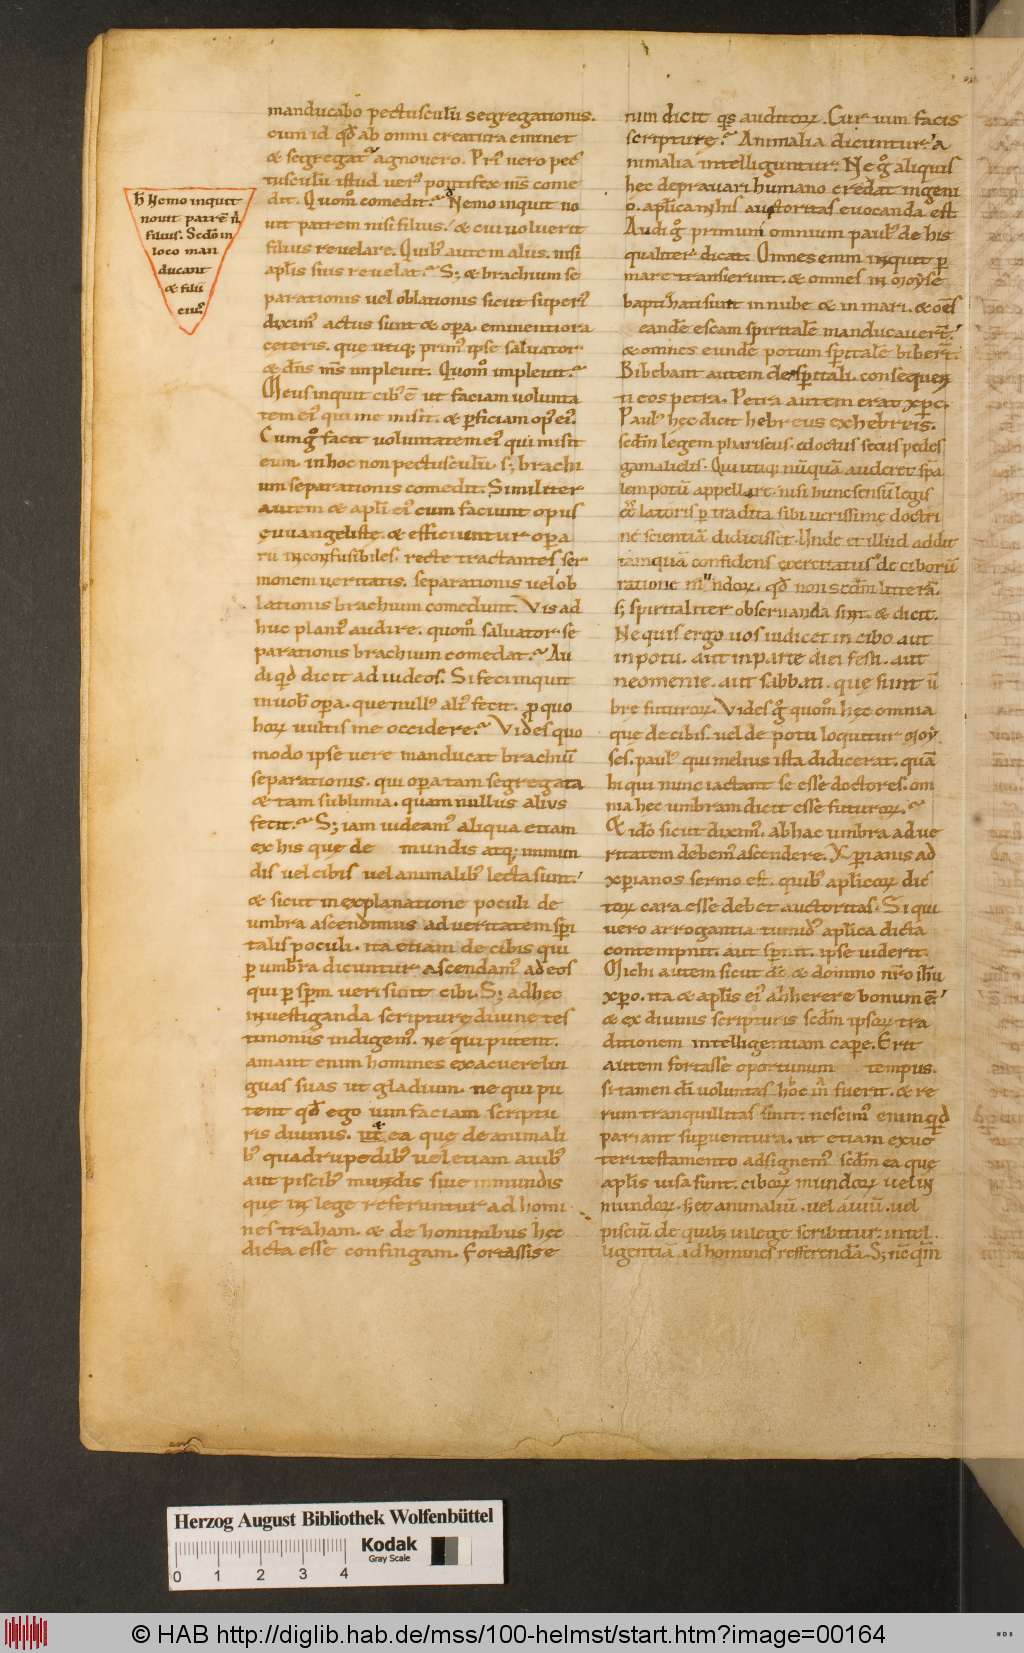 manducabo pectusculū segregationis.
cum id qđ ab omni creatura eminet
& segregatᵉ agnovero. Prī vero pec
tusculū istud verꝰ pontifex nr̄s come
dit. Quom̊ comedit? Nemo inquit no
uit patrem nisi filius. & cui voluerit
filius revelare. Quibꝰ autem alius. nisi
apl̄is suis revelat? S; & brachium se
parationis vel oblationis sicut superꝰ
diximꝰ actus sunt & opa. eminentiora
ceteris. que utiq; primꝰ ipse salvator
& dn̄s nr̄s implevit. Quom̊ implevit?
Meus inquit cibꝰ ē ut faciam volunta
tem eiꝰ qui me misit. & pficiam opꝰ eiꝰ.
Cum gͦ facit voluntatem eiꝰ qui misit
eum. in hoc non pectusculū s; brachi
um separationis comedit. Similiter
autem & apl̄i eiꝰ cum faciunt opus
evvangeliste. & efficiuntur opa
rii inconfusibiles. recte tractantes ser
monem veritatis. separationis vel ob
lationis brachium comedunt. Vis ad
huc planiꝰ audire. quom̊ salvator se
parationis brachium comedat? Au
di qid dicit ad iudeos. Si feci inquit
in vob̄ opa. que nullꝰ aliꝰ fecit. p quo
hoꝝ vultis me occidere? Vides quo
modo ipse vere manducat brachiū
separationis. qui opa tam segregata
& tam sublimia. quam nullus alivs
fecit? S; iam videamꝰ aliqua etiam
ex his que de mundis atq; inmun
dis vel cibis vel animalibꝰ lecta sunt.
& sicut in explanatione poculi de
umbra ascendimus ad veritatem spi
talis poculi. ita etiam de cibis qui
p umbra dicuntur ascendamꝰ ad eos
qui p spm̄ veri sunt cibi. S; ad hec
investiganda scripture divine tes
timoniis indigemꝰ. ne qui putent.
amant enim homines exacuere lin
guas suas ut gladium. ne qui pu
tent qđ ego vim faciam scriptu
ris divinis. ut ea que de animali
bꝰ quadrupedibꝰ vel etiam avibꝰ
aut piscibꝰ mundis sive inmundis
que in lege referuntur ad homi
nes traham. & de hominibus hec
dicta esse confingam. Fortassis e
ħ Nemo inquit
novit patrē n̄
filius. Secdo in
loco man
ducant
& filii
eiusͣ
nim dicit qis auditoꝝ. Cur vim facis
scripture? Animalia dicuntur. a
nimalia intelliguntur. Ne gͦ aliquis
hec depravari humano credat ingeni
o. apl̄ica nihis auctoritas evocanda est.
Audi gͦ primum omnium paulꝰ de his
qualiter dicat. Omnes enim inquit p
mare transierunt. & omnes in moyse
baptizati sunt in nube & in mari. & om̄s
eandē escam spiritalē manducavert̄.
& omnes eundē potum spitalē bibert̄.
Bibebant autem de spitali. consequen
ti eos petra. Petra autem erat xpc.
Paulꝰ hec dicit hebreus ex hebreis.
scdm̄ legem phariseus. edoctus secus pedes
gamalielis. Qui utiq; nūquā auderet spita
lem potū appellare. nisi hunc sensū legis
latoris p tradita sibi verissime doctri
ne scientiā didicisset. Unde et illud addit
tamquā confidens de ciborū
ratione mundoꝝ. qđ non scdm̄ litterā.
s; spiritaliter observanda sint. & dicit.
Ne quis ergo vos iudicet in cibo aut
in potu. aut in parte diei festi. aut
neomenie. aut sabbati. que sunt ū
bre futuroꝝ. Vides gͦ quom̊ hec omnia
que de cibis. vel de potu loquitur moy
ses. paulꝰ qui melius ista didicerat. quā
hi qui nunc iactant se esse doctores. om
nia hec umbram dicit esse futuroꝝ.
Et ido sicut diximꝰ. ab hac umbra ad ve
ritatem debemꝰ ascendere. Xpianis ad
xpianos sermo est. quibꝰ apl̄icoꝝ dic
toꝝ cara esse debet auctoritas. Si qui
vero arrogantia tumidꝰ apl̄ica dicta
contempnit. aut spnit. ipse viderit.
Michi autem sicut dō & domino nr̄o ihū
xpo. ita & apl̄is eiꝰ adherere bonum ē
& ex divinis scripturis scdm̄ ipsoꝝ tra
ditionem intelligentiam cape. Erit
autem fortasse oportunum tempus.
si tamen di voluntas hͦc m̄ fuerit. & re
rum tranquillitas sinit. nescimꝰ enim qid
pariant supventura. ut etiam ex ve
teri testamento adsignemꝰ scdm̄ ea que
apl̄is visa sunt. ciboꝝ mundoꝝ vel in
mundoꝝ. set animaliū. vel aviū. vel
pisciū de quibꝫ in lege scribitur. intel
ligentiā ad homines refferendā. S; nē qm̄
Herzog August Bibliothek Wolfenbüttel
Kodak
Gray Scale
0 1 2 3 4
© HAB http://diglib.hab.de/mss/100-helmst/start.htm?image=00164